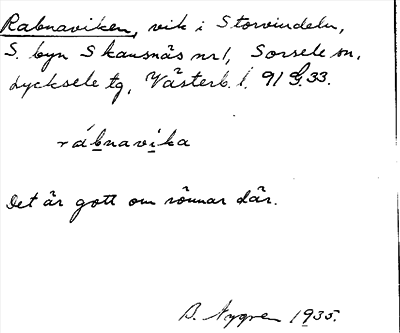 Rabnaviken, vik i Storvindeln,
S. byn Skansnäs nr 1, Sorsele sn,
Lycksele tg, Västerb. l. 91 G. 33.
rábnavika
Det är gott om rönnar där.
B. Nygren 1935.